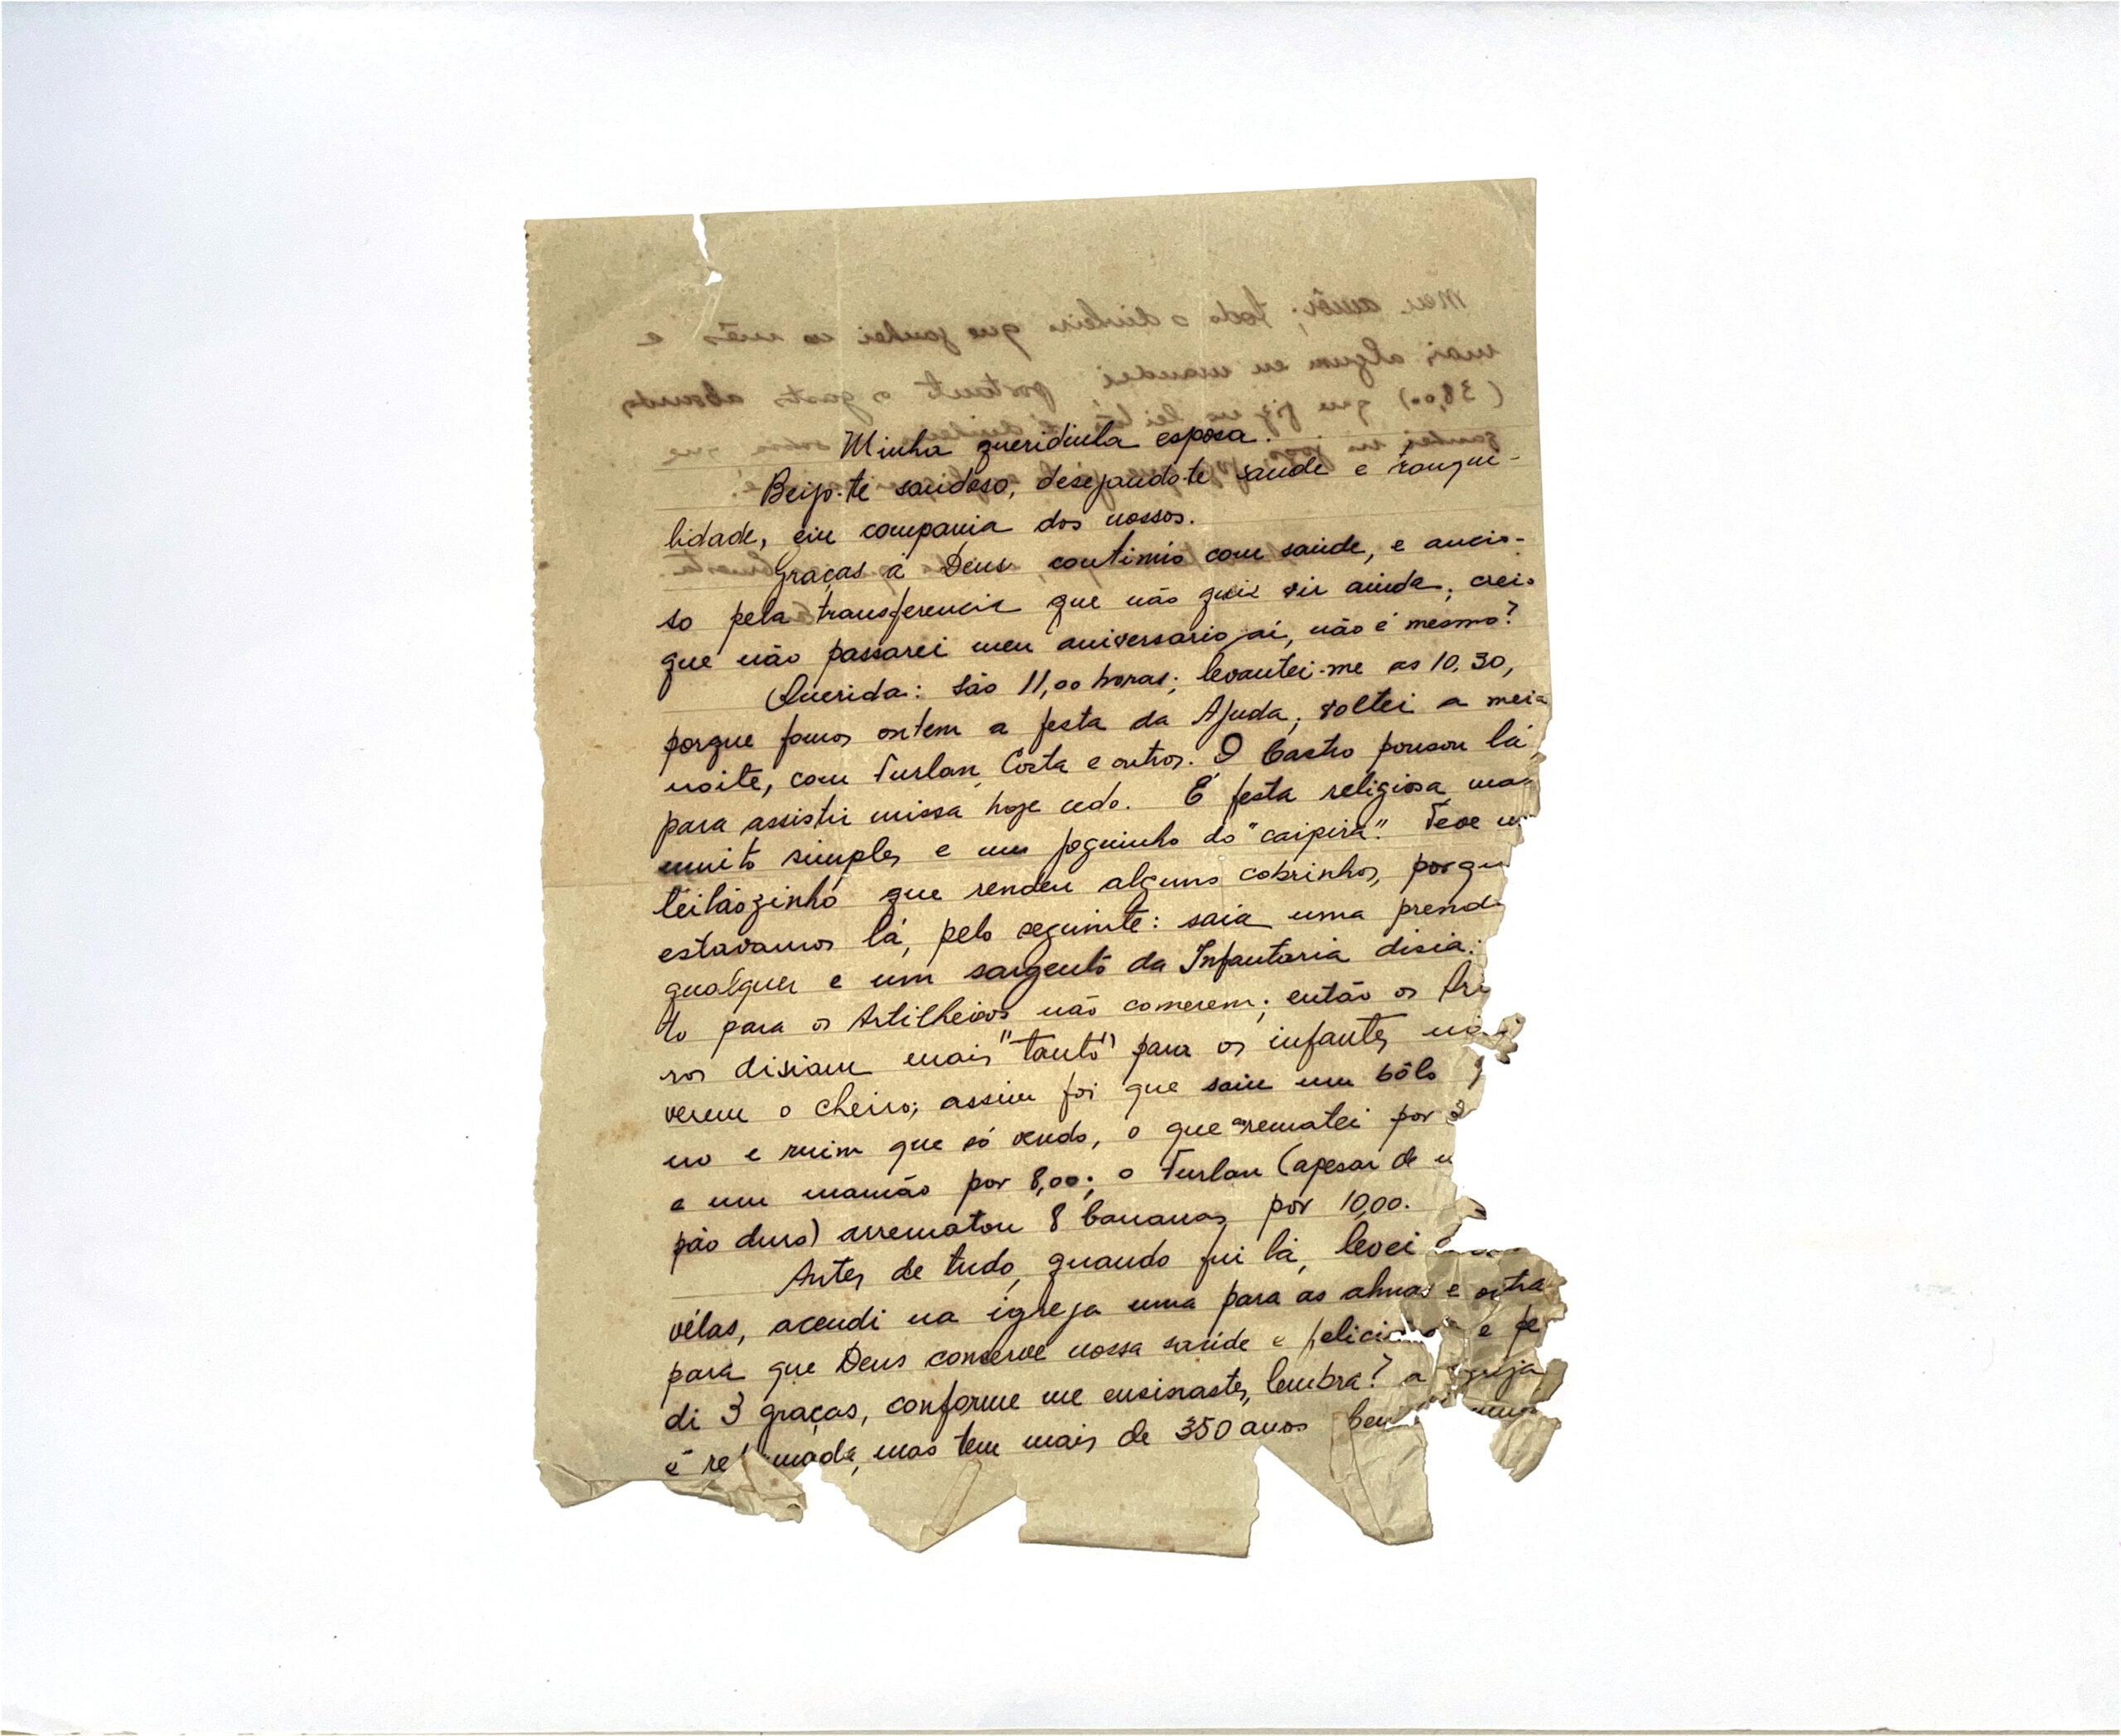 Minha queridinha esposa.
Beijo-te saudoso, desejando-te saude e tranqui-
lidade, em compania dos nossos.
Graças á Deus continúo com saúde, e ancio-
so pela transferencia que não quiz vir ainda; creio
que não passarei meu aniversario aí, não é mesmo?
Querida: são 11,00 horas; levantei-me as 10,30,
porque fomos ontem a festa da Ajuda, voltei a meia
noite, com Furlan, Costa e outros. O Castro pousou lá,
para assistir missa hoje cedo. É festa religiosa mas
muito simples e um joguinho do "caipira". Teve
leilãozinho que rendeu alguns cobrinhos, porqu
estavamos lá, pelo seguinte: saia uma prend
qualquer e um sargento da Infantaria disia:
to para os Artilheiros não comerem; então os
ros disiam mais "tanto" para os infantes
verem o cheiro; assim foi que saiu um bôlo
no e ruim que só vendo, o que arrematei por
e um mamão por 8,00; o Furlan (apesar de
pão duro) arrematou 8 bananas por 10,00.
Antes de tudo, quando fui lá, levei
vélas, acendi na igreja uma para as almas e outra
para que Deus conserve nossa saúde e e pe
di 3 graças, conforme me ensinastes, lembra? a igreja
é mas tem mais de 350 anos
Meu amôr; todo o dinheiro que ganhei no mês e
mais algum eu mandei portanto o gasto
(38,00) que fiz no
ganhei no jogo,